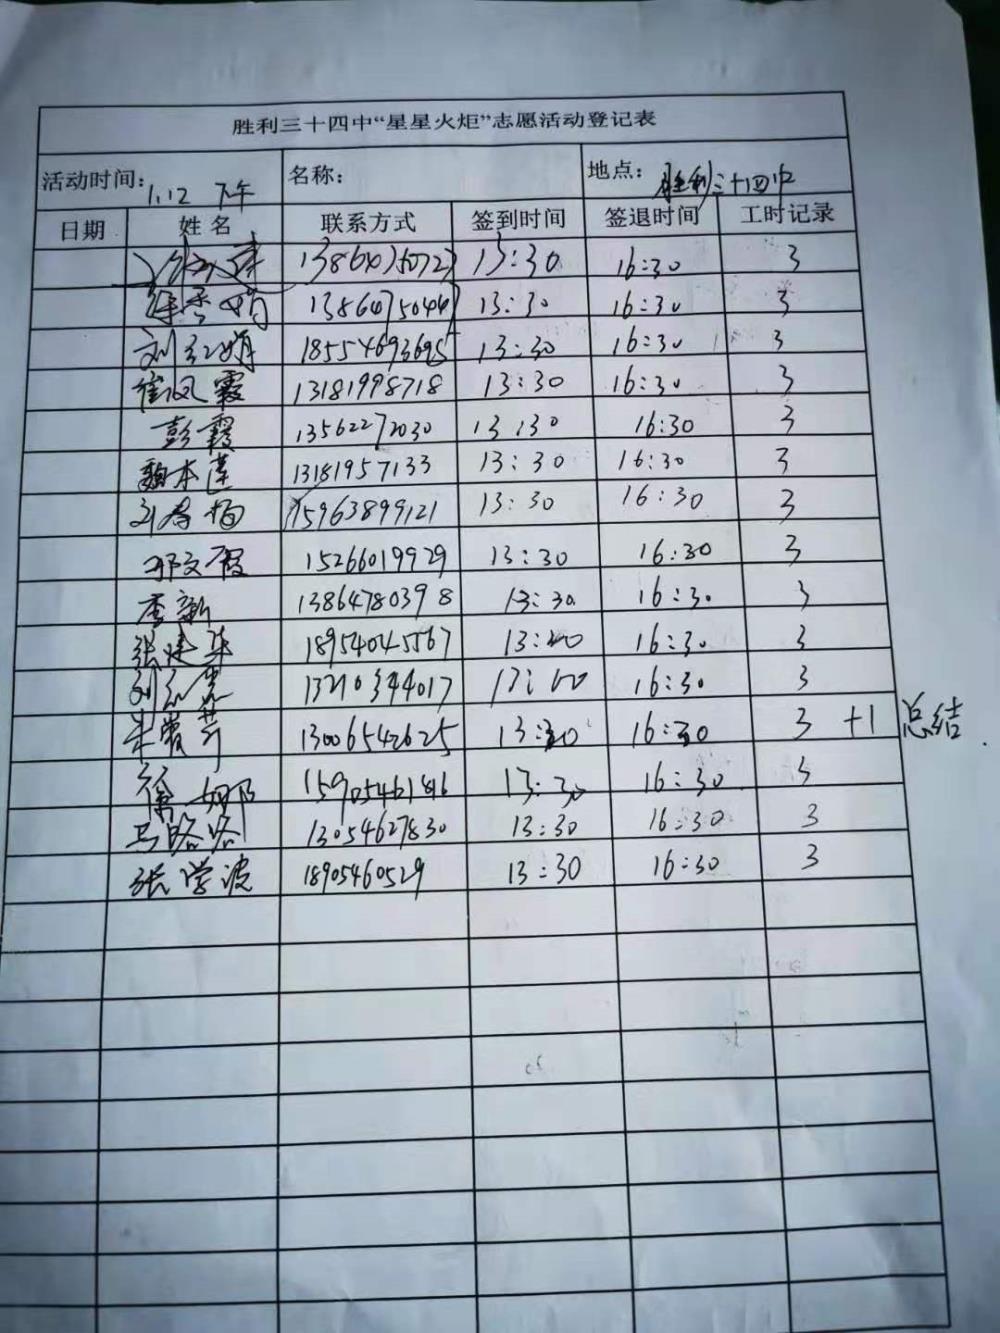 胜利三十四中“星星火炬”志愿活动登记表
活动时间：1.12 下午 名称： 地点：胜利三十四中
日期 姓名 联系方式 签到时间 签退时间 工时记录
13:30 16:30 3
13:30 16:30 3
刘红娟 18554693695 13:30 16:30 3
崔凤霞 13181998718 13:30 16:30 3
彭霞 13562272030 13:30 16:30 3
魏本莲 13181957133 13:30 16:30 3
15963899121 13:30 16:30 3
15266019929 13:30 16:30 3
李新 13864780398 13:30 16:30 3
张建华 18954045567 13:20 16:30 3
13210344017 16:30 3
13006542625 13:30 16:30 3 +1 总结
13:30 16:30 3
马路路 13054627830 13:30 16:30 3
张学波 18905460529 13:30 16:30 3